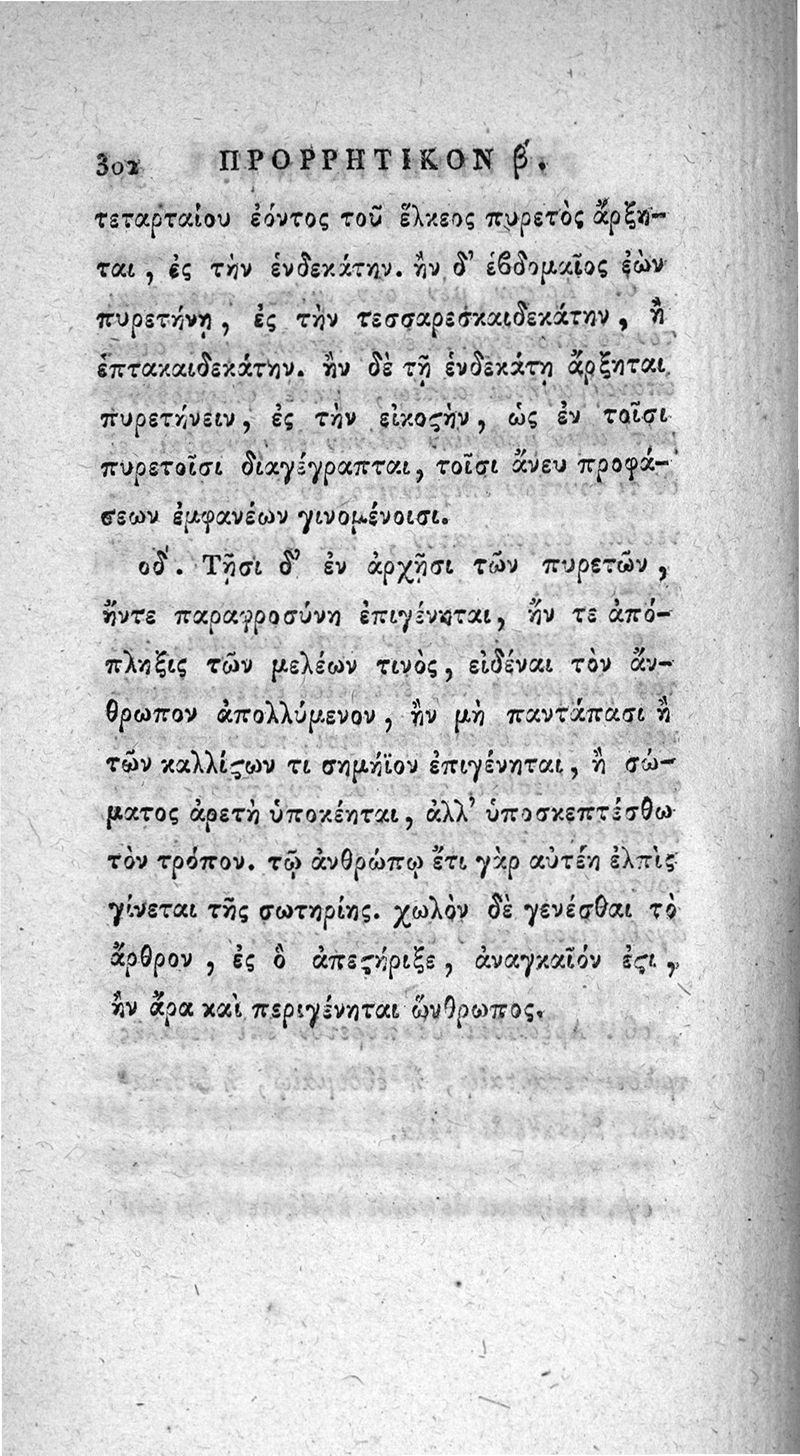 302 ΠΡΟΡΡΗΤΙΚΟΝ β΄.
τεταρταίου ἐόντος τοῦ ἕλκεος πυρετὸς ἄρξη-
ται, ἐς τὴν ἑνδεκάτην. ἢν δ' ἑβδομαῖος ἐὼν
πυρετήνῃ, ἐς τὴν τεσσαρεσκαιδεκάτην, ἢ
ἑπτακαιδεκάτην. ἢν δὲ τῇ ἑνδεκάτῃ ἄρξηται
πυρετήνειν, ἐς τὴν εἰκοϛὴν, ὡς ἐν τοῖσι
πυρετοῖσι διαγέγραπται, τοῖσι ἄνευ προφά-
σεων ἐμφανέων γινομένοισι.
οδ΄. Τῇσι δ' ἐν ἀρχῇσι τῶν πυρετῶν,
ἤντε παραφροσύνη ἐπιγένηται, ἤν τε ἀπό-
πληξις τῶν μελέων τινὸς, εἰδέναι τὸν ἄν-
θρωπον ἀπολλύμενον, ἢν μὴ παντάπασι ἢ
τῶν καλλίϛων τι σημήϊον ἐπιγένηται, ἢ σώ-
ματος ἀρετὴ ὑποκέηται, ἀλλ' ὑποσκεπτέσθω
τὸν τρόπον. τῷ ἀνθρώπῳ ἔτι γὰρ αὐτέη ἐλπὶς
γίνεται τῆς σωτηρίης. χωλὸν δὲ γενέσθαι τὸ
ἄρθρον, ἐς ὃ ἀπεϛήριξε, ἀναγκαῖόν ἐϛι,
ἢν ἄρα καὶ περιγένηται ὥνθρωπος.